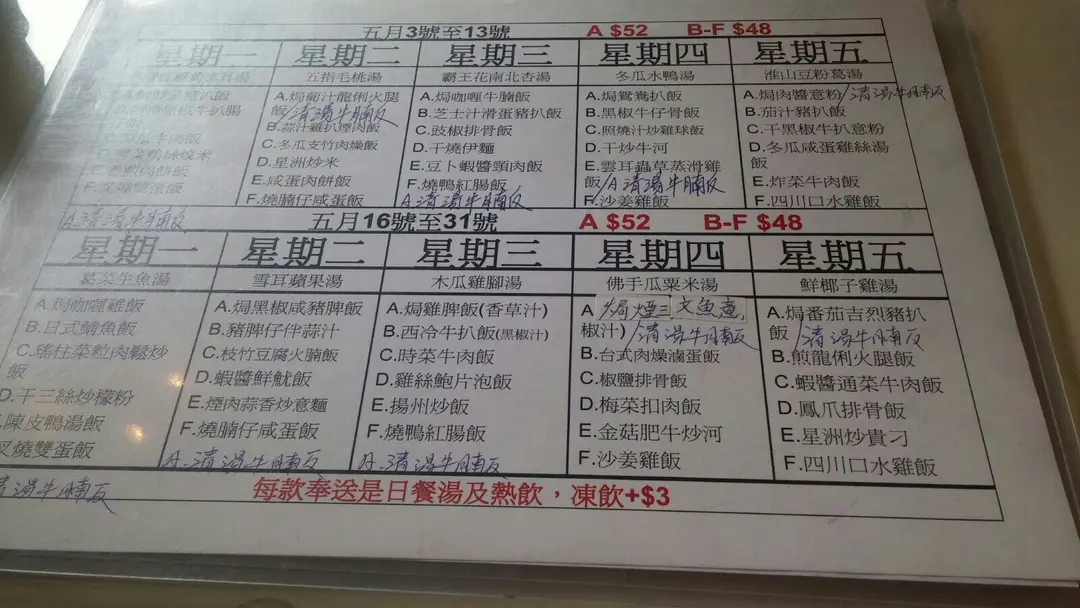 五月3號至13號 A $52 B-F $48
星期一 星期二 星期三 星期四 星期五
五指毛桃湯 霸王花南北杏湯 冬瓜水鴨湯 淮山豆粉葛湯
A.焗葡汁龍俐火腿飯/清湯牛腩飯
B.蒜汁雞扒煙肉飯
C.冬瓜支竹肉燥飯
D.星洲炒米
E.咸蛋肉餅飯
F.燒腩仔咸蛋飯
A.焗咖喱牛腩飯
B.芝士汁滑蛋豬扒飯
C.豉椒排骨飯
D.干燒伊麵
E.豆卜蝦醬頸肉飯
F.燒鴨紅腸飯
A.清湯牛腩飯
A.焗鴛鴦扒飯
B.黑椒牛仔骨飯
C.照燒汁炒雞球飯
D.干炒牛河
E.雲耳蟲草蒸滑雞
飯/A清湯牛腩飯
F.沙姜雞飯
A.焗肉醬意粉/清湯牛腩飯
B.茄汁豬扒飯
C.干黑椒牛扒意粉
D.冬瓜咸蛋雞絲湯
飯
E.炸菜牛肉飯
F.四川口水雞飯
A.清湯牛腩飯
五月16號至31號 A $52 B-F $48
星期一 星期二 星期三 星期四 星期五
葛菜生魚湯 雪耳蘋果湯 木瓜雞腳湯 佛手瓜粟米湯 鮮椰子雞湯
A.焗咖喱雞飯
B.日式鯖魚飯
C.瑤柱菜粒肉鬆炒
飯
D.干三絲炒檬粉
E.陳皮鴨湯飯
叉燒雙蛋飯
清湯牛腩飯
A.焗黑椒咸豬脾飯
B.豬脾仔伴蒜汁
C.枝竹豆腐火腩飯
D.蝦醬鮮魷飯
E.煙肉蒜香炒意麵
F.燒腩仔咸蛋飯
A.清湯牛腩飯
A.焗雞脾飯(香草汁)
B.西冷牛扒飯(黑椒汁)
C.時菜牛肉飯
D.雞絲鮑片泡飯
E.揚州炒飯
F.燒鴨紅腸飯
A.清湯牛腩飯
A焗煙三文魚意
椒汁)/清湯牛腩飯
B.台式肉燥滷蛋飯
C.椒鹽排骨飯
D.梅菜扣肉飯
E.金菇肥牛炒河
F.沙姜雞飯
A.焗番茄吉烈豬扒
飯/清湯牛腩飯
B.煎龍俐火腿飯
C.蝦醬通菜牛肉飯
D.鳳爪排骨飯
E.星洲炒貴刁
F.四川口水雞飯
每款奉送是日餐湯及熱飲，凍飲+$3